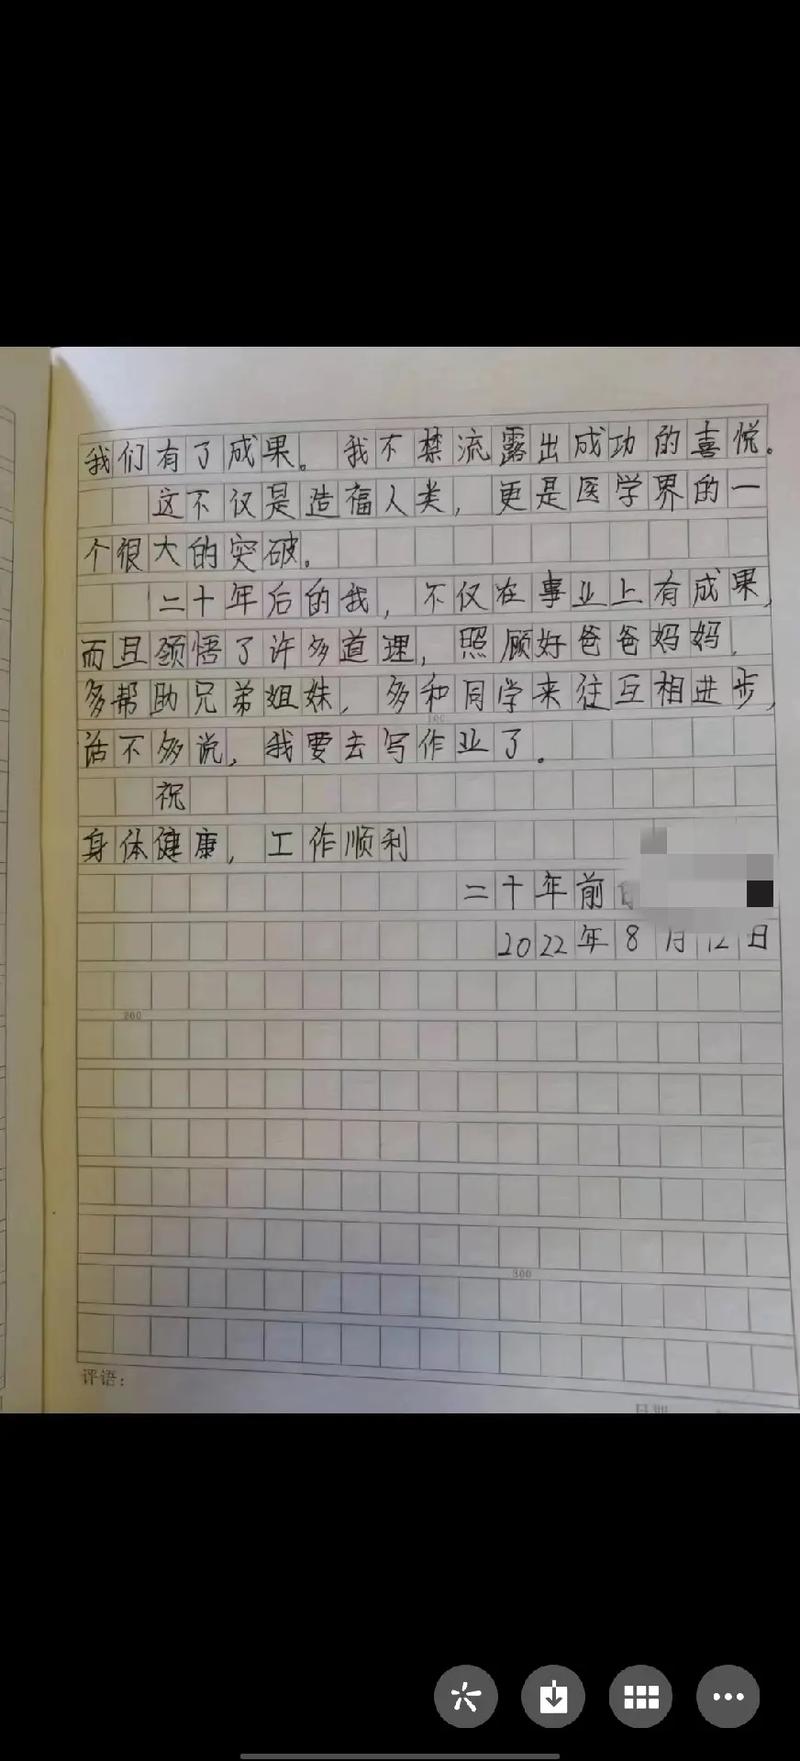 我们有了成果。我不禁流露出成功的喜悦。
这不仅是造福人类，更是医学界的一
个很大的突破。
二十年后的我，不仅在事业上有成果，
而且领悟了许多道理，照顾好爸爸妈妈，
多帮助兄弟姐妹，多和同学来往互相进步，
100
话不多说，我要去写作业了。
祝
身体健康，工作顺利
二十年前
2022年8月12日
200
300
评语：